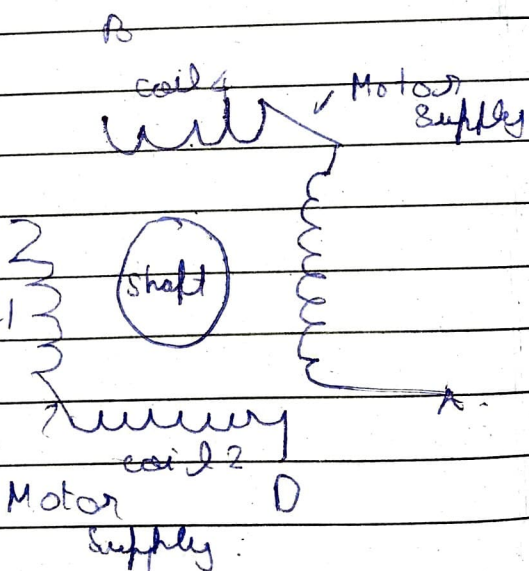 B
coil 4
Motor
Supply
Shaft
1
A
coil 2
Motor
D
Supply